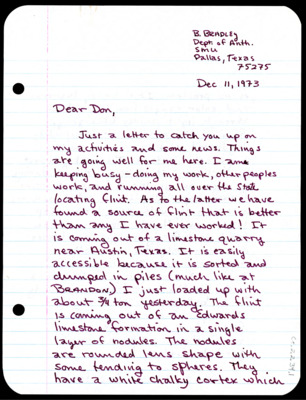 B. BRADLEY
Dept of Anth.
SMU
Dallas, Texas
75275
Dec 11, 1973
Dear Don,
Just a letter to catch you up on
my activities and some news. Things
are going well for me here. I am
keeping busy - doing my work, other peoples
work, and running all over the state
locating flint. As to the latter we have
found a source of flint that is better
than any I have ever worked! It
is coming out of a limestone quarry
near Austin, Texas. It is easily
accessible because it is sorted and
dumped in piles (much like at
BRANDON.) I just loaded up with
about 3/4 ton yesterday. The flint
is coming out of an Edwards
limestone formation in a single
layer of nodules. The nodules
are rounded lens shape with
some tending to spheres. They
have a white chalky cortex which